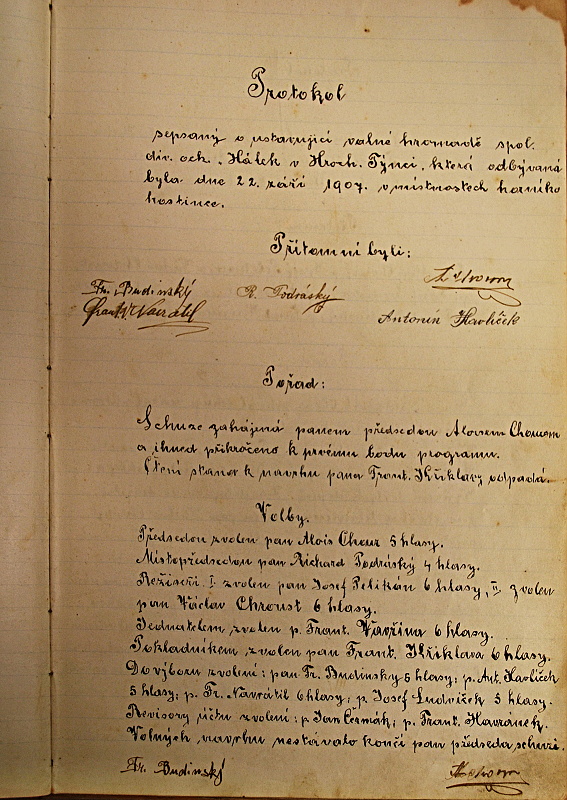 Protokol
sepsaný o ustavující valné hromadě spol.
div. och. "Hálek v Hroch. Týnci, která odbývaná
byla dne 22. září 1907. v místnostech horního
hostince.
Přítomni byli:
Fr. Budinský R. Podráský
Frant. Navrátil Antonín Havlíček
Pořad:
Schuze zahájená panem předsedou Aloisem Chourem
a ihned přikročeno k prvému bodu programu.
Čtení stanov k návrhu pana Frant. Křiklavy odpadá.
Volby.
Předsedou zvolen pan Alois Chour 5 hlasy.
Místopředsedou pan Richard Podráský 4 hlasy.
Režiseři I. zvolen pan Josef Pelikán 6 hlasy, II. zvolen
pan Václav Chroust 6 hlasy.
Jednatelem zvolen p. Frant. Vavřina 6 hlasy.
Pokladníkem zvolen pan Frant. Křiklava 6 hlasy.
Do výboru zvolení: pan Fr. Budinsky 5 hlasy; p. Ant. Havlíček
5 hlasy; p. Fr. Navrátil 6 hlasy; p. Josef Ludvíček 5 hlasy.
Revisory účtu zvolení: p Jan Čermák; p. Frant. Havranek.
Volných navrhu nestávalo končí pan předseda schuzi.
Fr. Budinský